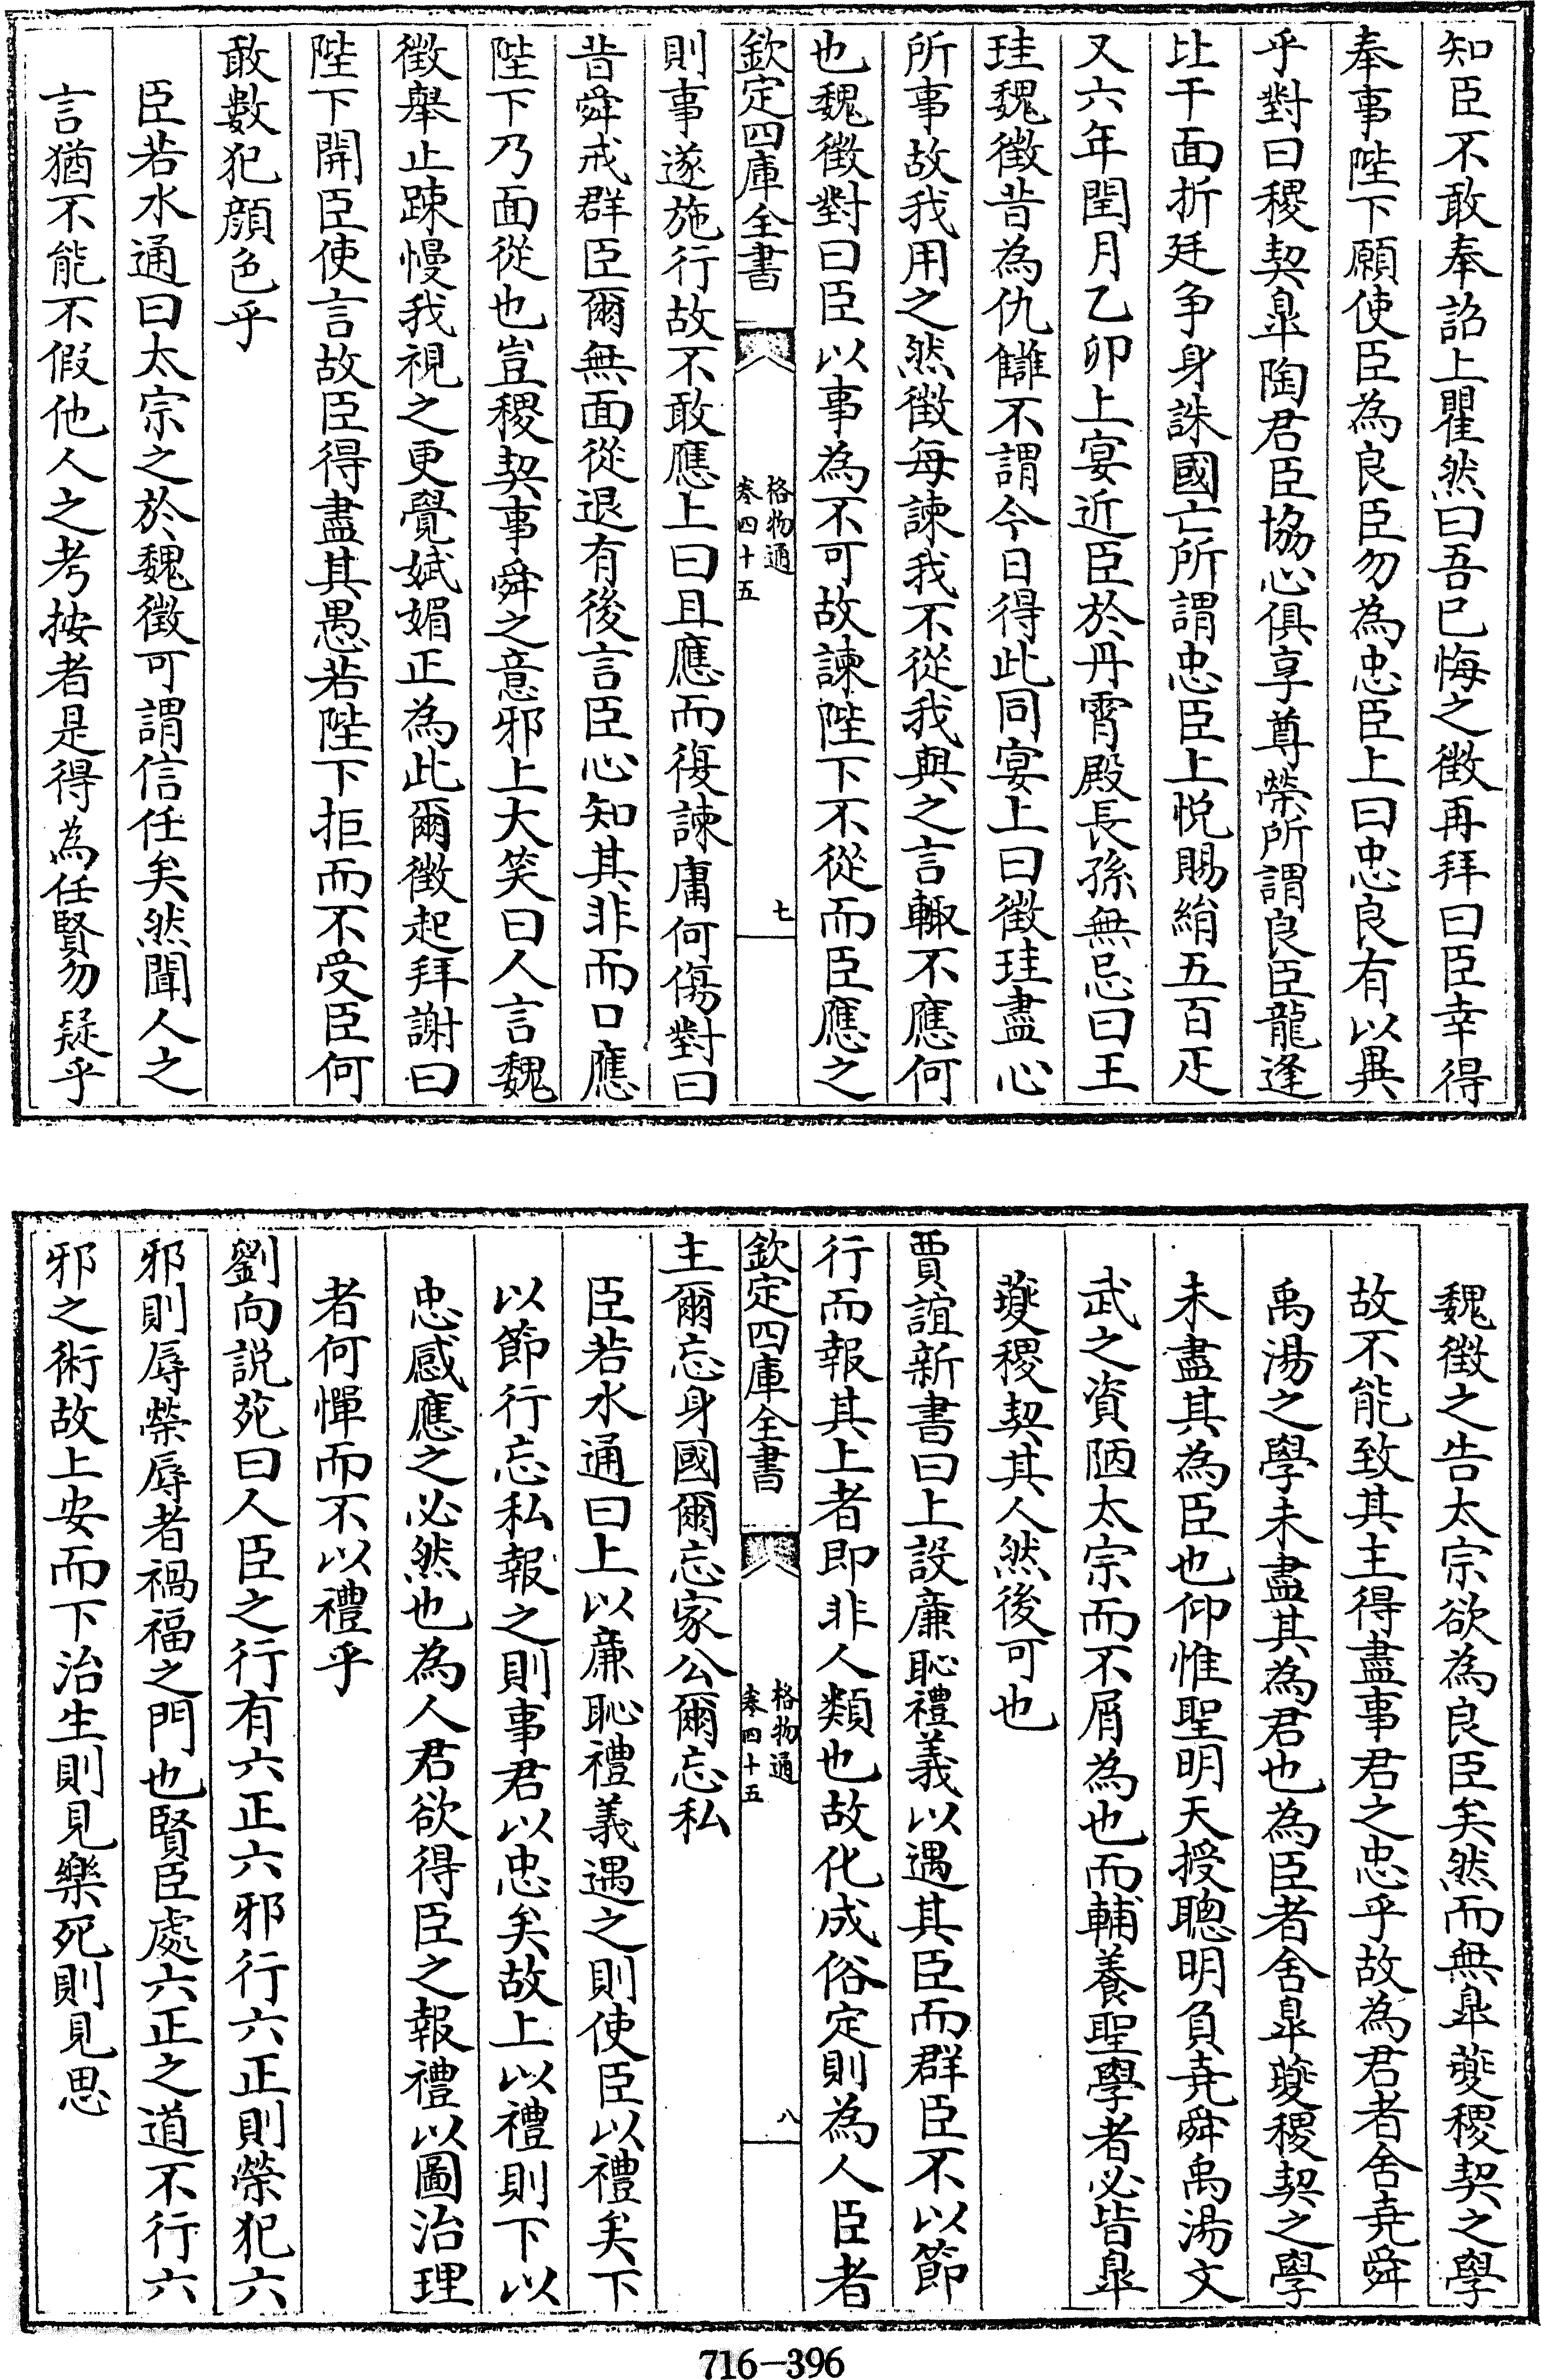 知臣不敢奉詔上瞿然曰吾已悔之徵再拜曰臣幸得
奉事陛下願使臣為良臣勿為忠臣上曰忠良有以異
乎對曰稷契臯陶君臣協心俱享尊榮所謂良臣龍逢
比干面折廷争身誅國亡所謂忠臣上悦賜絹五百疋
又六年閏月乙卯上宴近臣於丹霄殿長孫無忌曰王
珪魏徵昔為仇讎不謂今日得此同宴上曰徵珪盡心
所事故我用之然徵每諫我不從我與之言輙不應何
也魏徵對曰臣以事為不可故諫陛下不從而臣應之
欽定四庫全書
格物通
卷四十五
七
則事遂施行故不敢應上曰且應而復諫庸何傷對曰
昔舜戒群臣爾無面從退有後言臣心知其非而口應
陛下乃面從也豈稷契事舜之意邪上大笑曰人言魏
徵舉止踈慢我視之更覺娬媚正為此爾徵起拜謝曰
陛下開臣使言故臣得盡其愚若陛下拒而不受臣何
敢數犯顔色乎
臣若水通曰太宗之於魏徵可謂信任矣然聞人之
言猶不能不假他人之考按者是得為任賢勿疑乎
魏徵之告太宗欲為良臣矣然而無臯夔稷契之學
故不能致其主得盡事君之忠乎故為君者舍堯舜
禹湯之學未盡其為君也為臣者舍臯夔稷契之學
未盡其為臣也仰惟聖明天授聰明負堯舜禹湯文
武之資陋太宗而不屑為也而輔養聖學者必皆臯
夔稷契其人然後可也
賈誼新書曰上設亷恥禮義以遇其臣而群臣不以節
行而報其上者即非人類也故化成俗定則為人臣者
欽定四庫全書
格物通
卷四十五
八
主爾忘身國爾忘家公爾忘私
臣若水通曰上以亷恥禮義遇之則使臣以禮矣下
以節行忘私報之則事君以忠矣故上以禮則下以
忠感應之必然也為人君欲得臣之報禮以圖治理
者何憚而不以禮乎
劉向説苑曰人臣之行有六正六邪行六正則榮犯六
邪則辱榮辱者禍福之門也賢臣處六正之道不行六
邪之術故上安而下治生則見樂死則見思
716-396